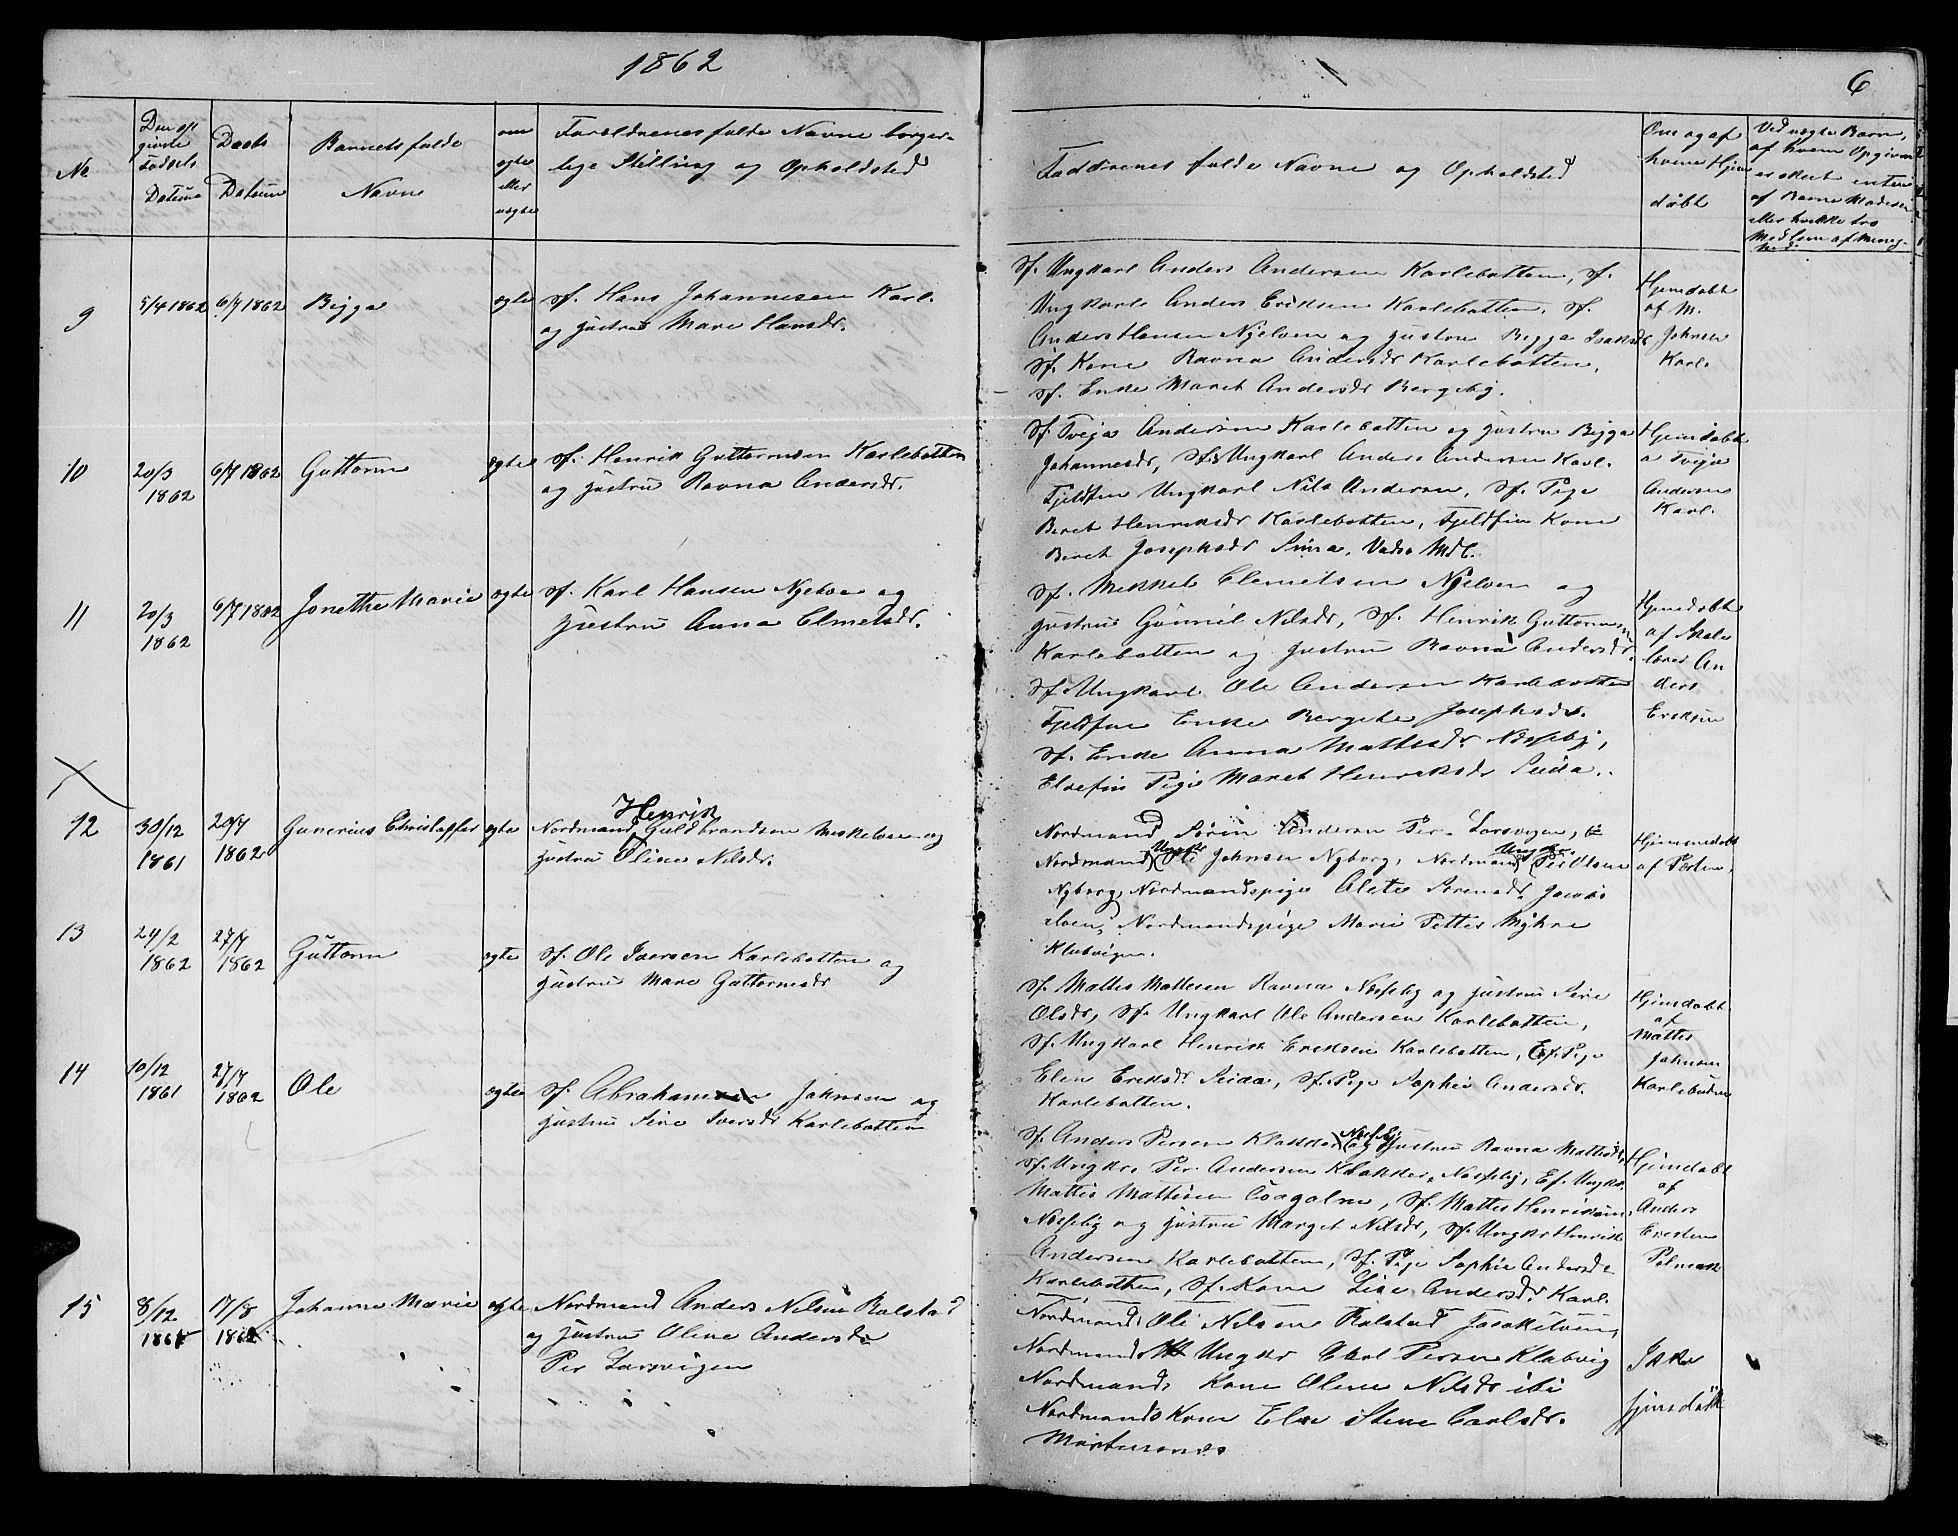 1862
6
No
Den op
givne
Fødsels
Datum
Daabs
Datum
Barnets fulde
Navne
om
ægte
eller
uægte
Forældrenes fulde Navne borger-
lige Stilling og Opholdsted
Faddrenes fulde Navne og Opholdsted
Om og af
hvem Hjem
døbt
Ved uægte Barn,
af hvem Opgiven
er skeet enten
af Barne Moderen
eller hvilke tro
Medlem af Menig-
hed.
9
5/4 1862
6/7 1862
Bigga
ægte
Sf. Hans Johannesen Karl.
og Hustru Mare Hansdr.
Sf. Ungkarl Anders Andersen Karlebotten, Sf.
Ungkarl Anders Eriksen Karlebotten, Sf.
Anders Hansen Nyelven og Hustru Bigga Isaksdr
Sf. Kone Ravna Andersdr Karlebotten,
Sf. Enke Maret Andersdr Bergeby.
Hjemdøbt
af M.
Johnsen
Karl.
10
20/3
1862
6/7 1862
Guttorm
ægte
Sf. Henrik Guttormsen Karlebotten
og Hustru Ravna Andersdr.
Sf. Tveja Andersen Karlebotten og Hustru Bigga
Johannesdr, Sf. Ungkarl Anders Andersen Karl.
Fjeldfin Ungkarl Nils Andersen, Sf. Pige
Beret Henriksdr Karlebotten, Fjeldfin Kone
Beret Josephsdr Sima, Vadsø Mdl.
Hjemdøbt
a Tveja
Andersen
Karl.
11
20/3
1862
6/7 1862
Jonethe Marie
ægte
Sf. Karl Hansen Nyelve og
Hustru Anna Clmetsdr.
Sf. Mikkel Clemetsen Nyelven og
Hustru Gunnil Nilsdr, Sf. Henrik Guttormsen
Karlebotten og Hustru Ravna Andersdr.
Sf. Ungkarl Ole Andersen Karlebotten
Fjeldfin Enke Bergete Josephsdr.
Sf. Enke Anna Mattisdr. Næsseby,
Elvefin Pige Maret Henriksdr Seida.
Hjemdøbt
af Skole
lærer An
ders
Eriksen
12
30/12
1861
20/7
1862
Gunerius Christoffer
ægte
Henrik
Nordmand Guldbrandsen Meskelven og
Hustru Oline Nilsdr.
Nordmand Søren Andersen Per Larsvigen,
Nordmand Ungk. Ole Johnsen Nyborg, Nordmand Ungk. Per Olsen
Nyborg, Nordmandspige Sørensdr. Jacobs
elven, Nordmandspige Marie Petter
Klubvigen.
Hjemmedøbt
af
13
24/2
1862
27/7
1862
Guttorm
ægte
Sf. Ole Iversen Karlebotten og
Hustru Mare Guttormsdr
Sf. Mattis Mattisen Ravna Næsseby og Hustru Siri
Olsdr, Sf. Ungkarl Ole Andersen Karlebotten,
Sf. Ungkarl Henrik Eriksen Karlebotten, Ef. Pige
Elen Eriksdr. Seida, Sf. Pige Sophie Andersdr.
Karlebotten.
Hjemdøbt
af
Mattis
Johnsen
Karlebotten
14
10/12
1861
27/7
1862
Ole
ægte
Sf. Abraham Johnsen og
Hustru Sire Iversdr Karlebotten
Sf. Anders Persen Klakker Næsseby og Hustru Ravna Mattisdr,
Sf. Ungkr. Per Andersen Klakker, Næsseby, Ef. Ungkr.
Mattis Mattisen, Sf. Mattis Henriksen,
Næsseby og Hustru Marget Nilsdr, Sf. Ungkr Henrik
Andersen Karlebotten, Sf. Pige Sophie Andersdr
Karlebotten, Sf. Kone Lise Andersdr. Karl.
Hjemdøbt
af
Anders
Eriksen
Polmak
15
8/12
1861
17/8
1862
Johanna Marie
ægte
Nordmand Anders Nilsen Ralstad
og Hustru Oline Andersdr
Per Larsvigen
Nordmand Ole Nilsen Ralstad Jacobselven,
Nordmands Ungkr Carl Persen Klubvig
Nordmands Kone Oline Nilsdr ibi
Nordmands Kone Else Stine Carlsdr.
Mortensnæs
Ikke
hjemdøbt